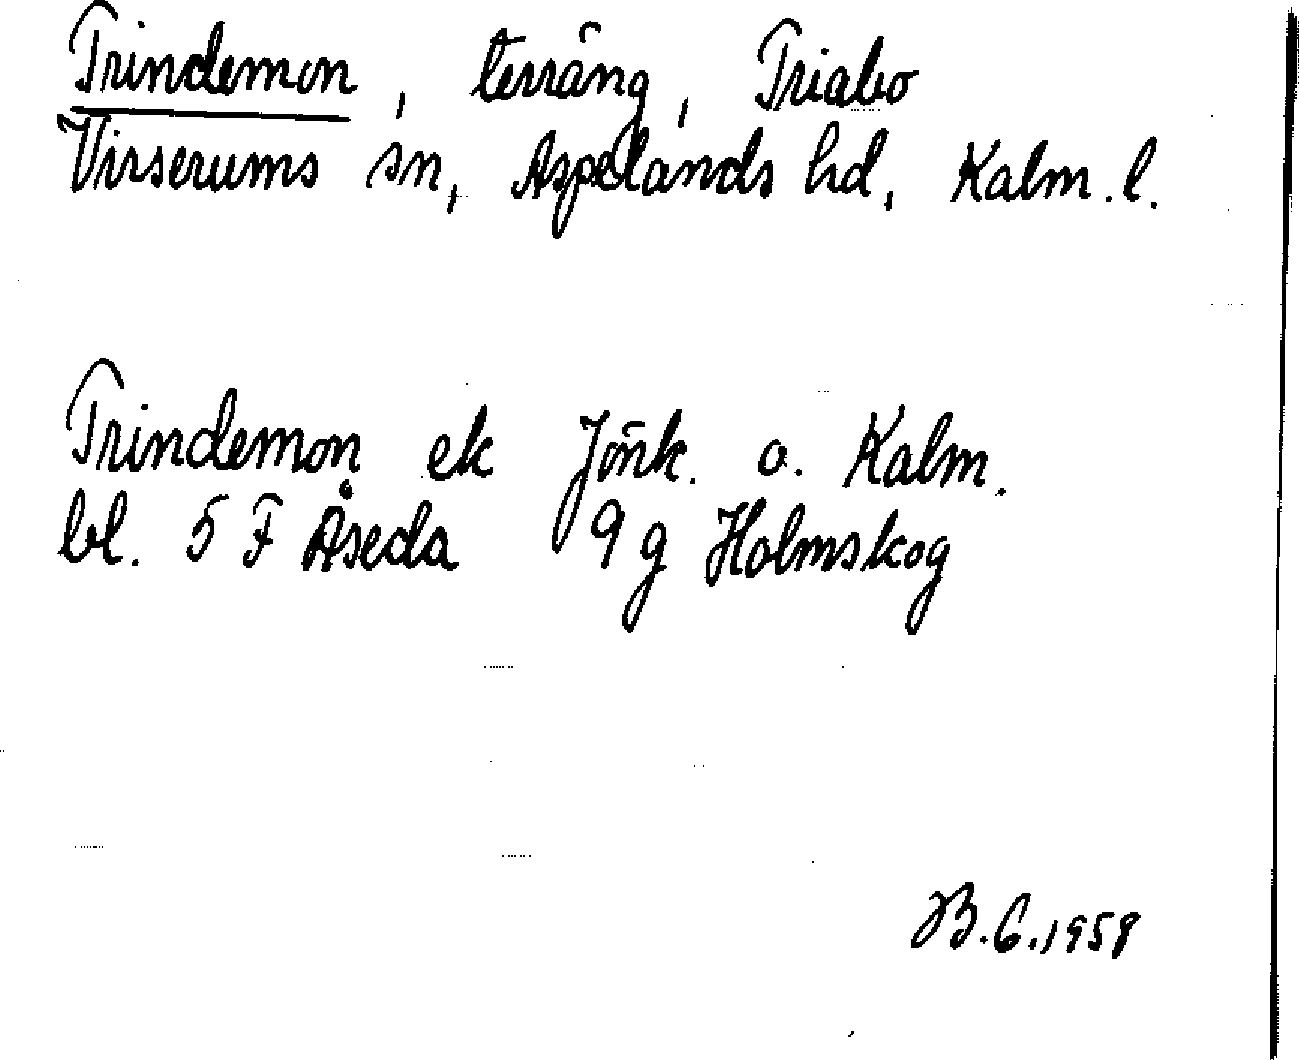 Trindemon, terräng, Triabo
Virserums sn, Aspelands hd, Kalm. l.
Trindemon ek Jönk. o. Kalm.
bl. 5 F Åseda 9 g Holmskog
B. G. 1958